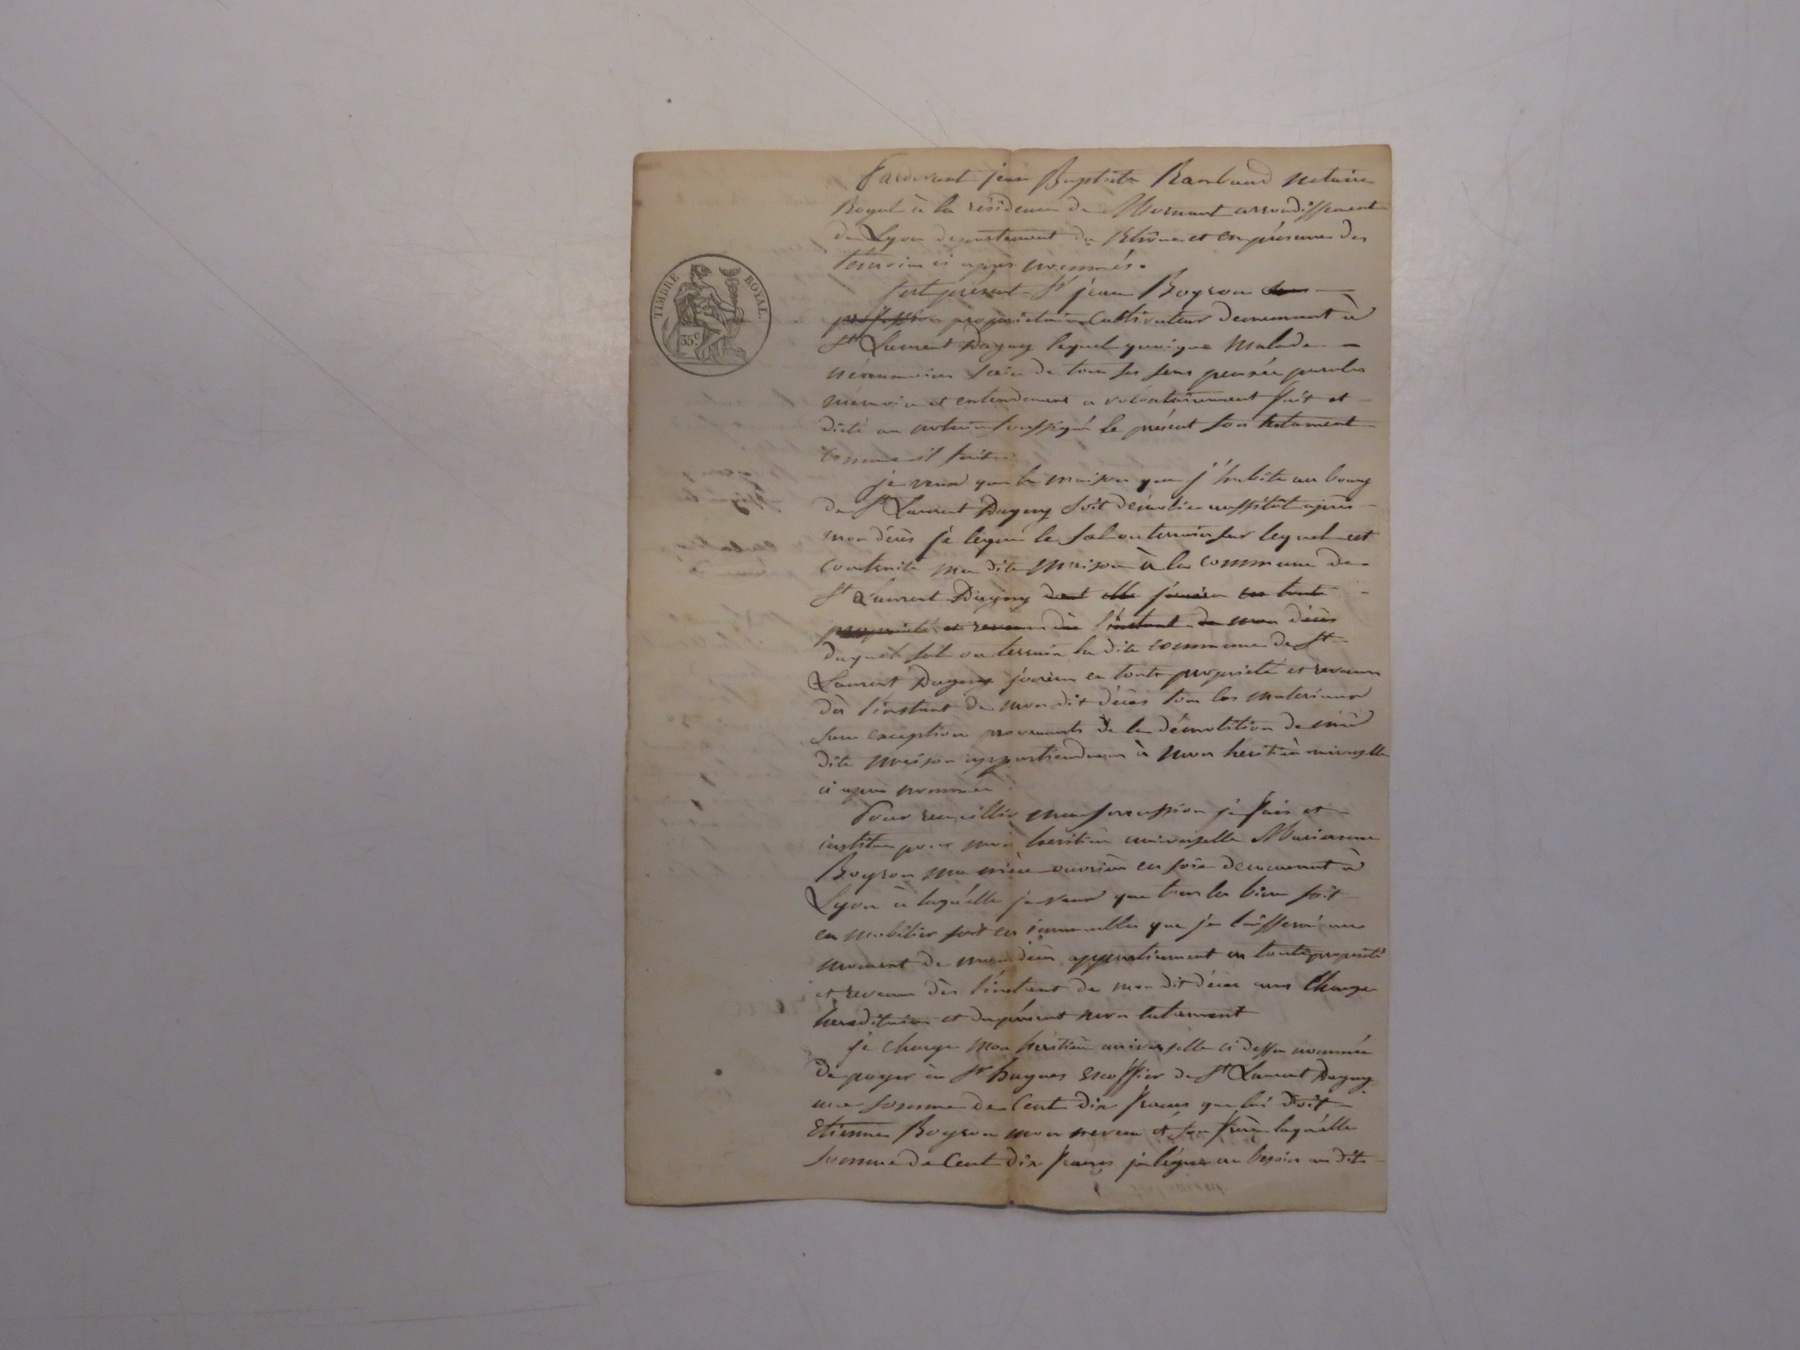 TIMBRE ROYAL.
35 c
Pardevant jean Baptiste Rambaud notaire
Royal à la résidence de Mornant arrondissement
de Lyon departement du Rhône et en présence des
temoins ci après nommés.
fut présent Sr jean Boyron
profession proprietaire Cultivateur demeurant à
St Laurent Dagny lequel quoique Malade
néanmoins sain de tous ses sens pensée paroles
mémoire et entendement a volontairement fait et
dicté au notaire soussigné le présent son testament
comme il suit.
je veux que la maison que j'habite au bourg
de St Laurent Dagny soit démolie aussitôt après
mon décès je legue le sol ou terrein sur lequel est
construite ma dite Maison à la commune de
St Laurent Dagny dont elle jouira en toute
propriété et revenu dès l'instant de mon décès
duquel sol ou terrein la dite commune de St
Laurent Dagny jouira en toute propriété et revenu
dès l'instant de mon dit décès tous les materiaux
sans exception provenants de la démolition de ma
dite maison appartiendront à mon heritière universelle
ci après nommée
Pour recueillir ma succession je fais et
institue pour mon heritière universelle Marianne
Boyron ma nièce ouvrière en soie demeurant à
Lyon à laquelle je veux que tous les biens soit
en mobilier soit en immeubles que je laisserai au
moment de mon décès appartiennent en toute propriété
et revenu dès l'instant de mon dit décès aux Charges
hereditaires et du présent mon testament
je charge mon héritière universelle ci dessus nommée
de payer au Sr hugues Escoffier de St Laurent Dagny
une somme de Cent dix francs que lui doit
Etienne Boyron mon neveu et son frère laquelle
somme de Cent dix francs je lègue au besoin au dit